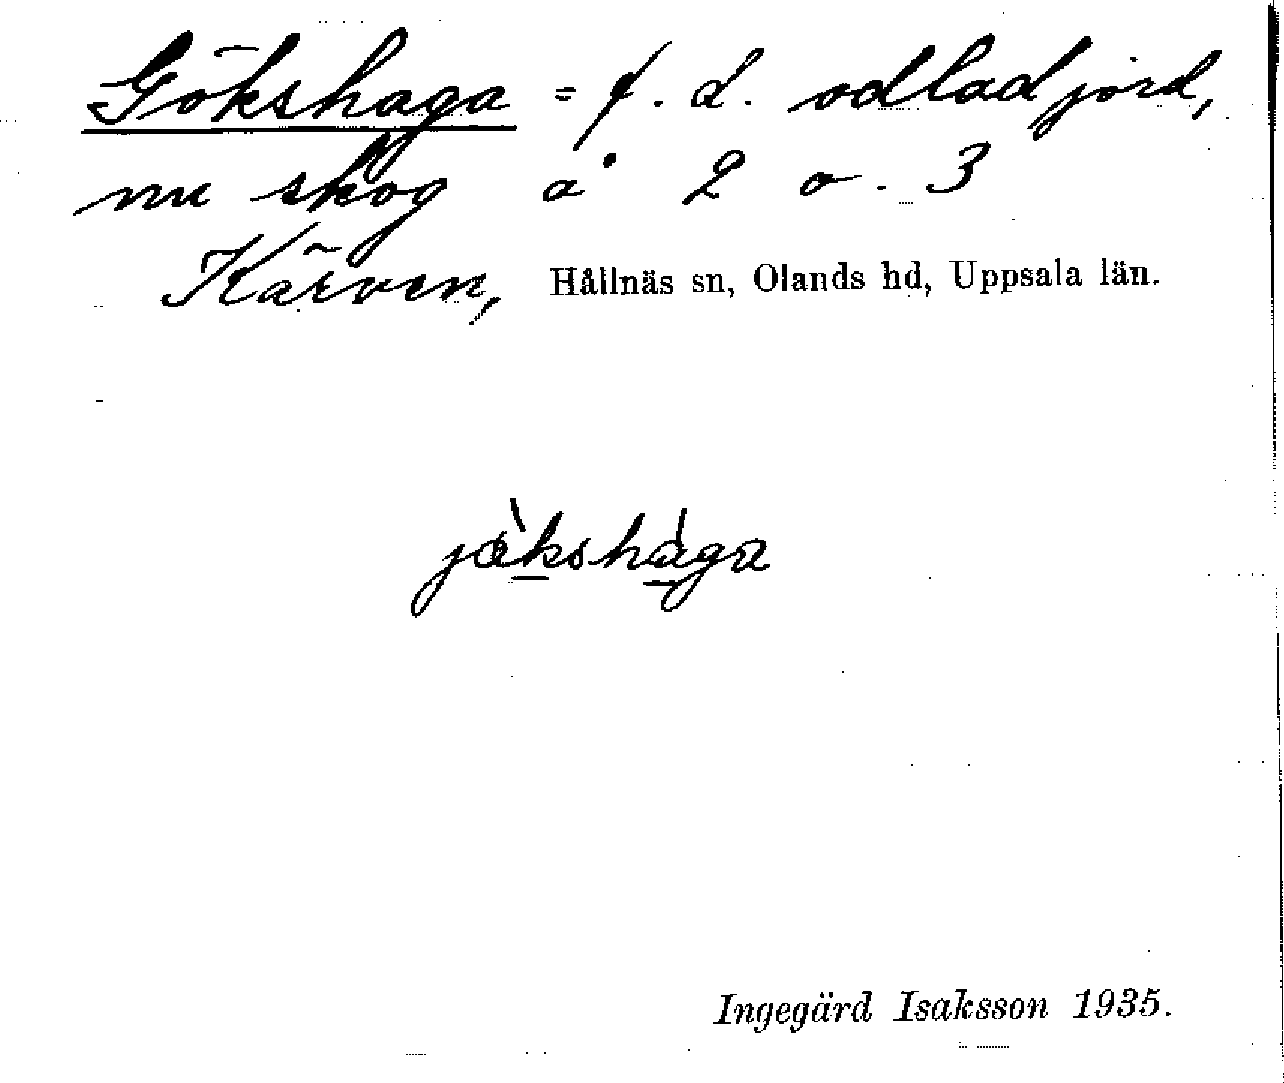 Gökshaga = f. d. odlad jord,
nu skog å 2 o. 3
Kärven, Hållnäs sn, Olands hd, Uppsala län.
jö̀kshága
Ingegärd Isaksson 1935.